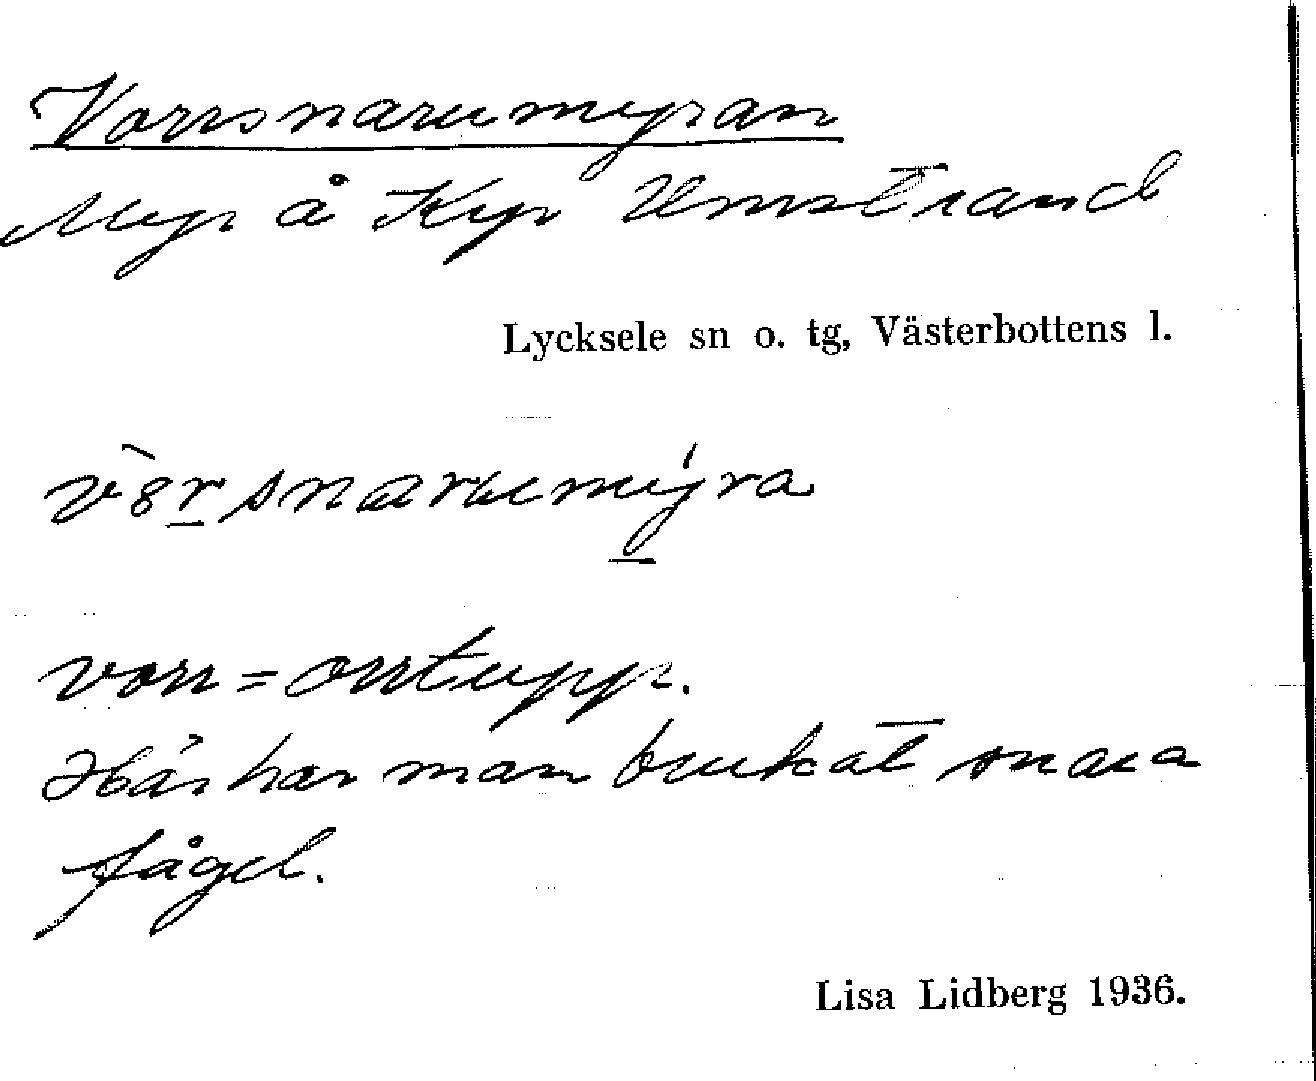 Vorrsnarumyran
Myr å Kyr Umstrand
Lycksele sn o. tg, Västerbottens l.
vorr = orrtupp.
Här har man brukat snara
fågel.
Lisa Lidberg 1936.